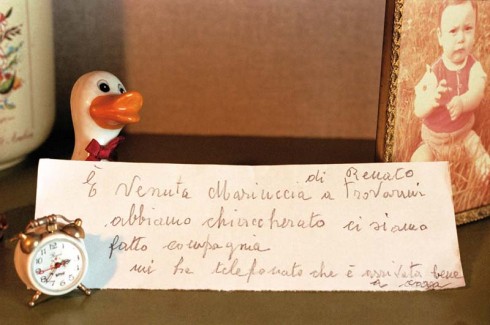 di Renato
È venuta Mariuccia a trovarmi
abbiamo chiaccherato ci siamo
fatto compagnia
mi ha telefonato che è arrivata bene
a casa